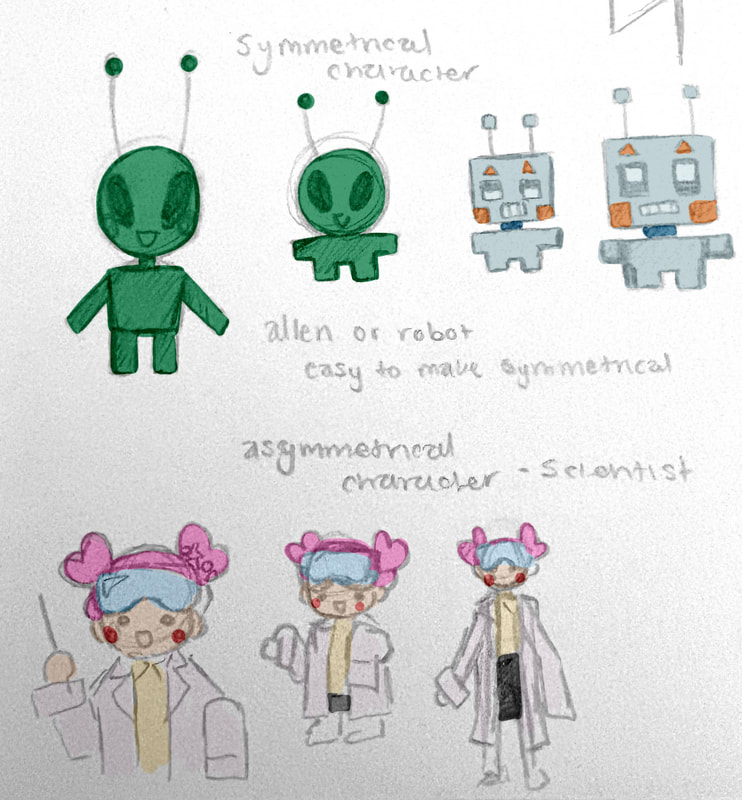 symmetrical
character
alien or robot
easy to make symmetrical
asymmetrical
character - scientist